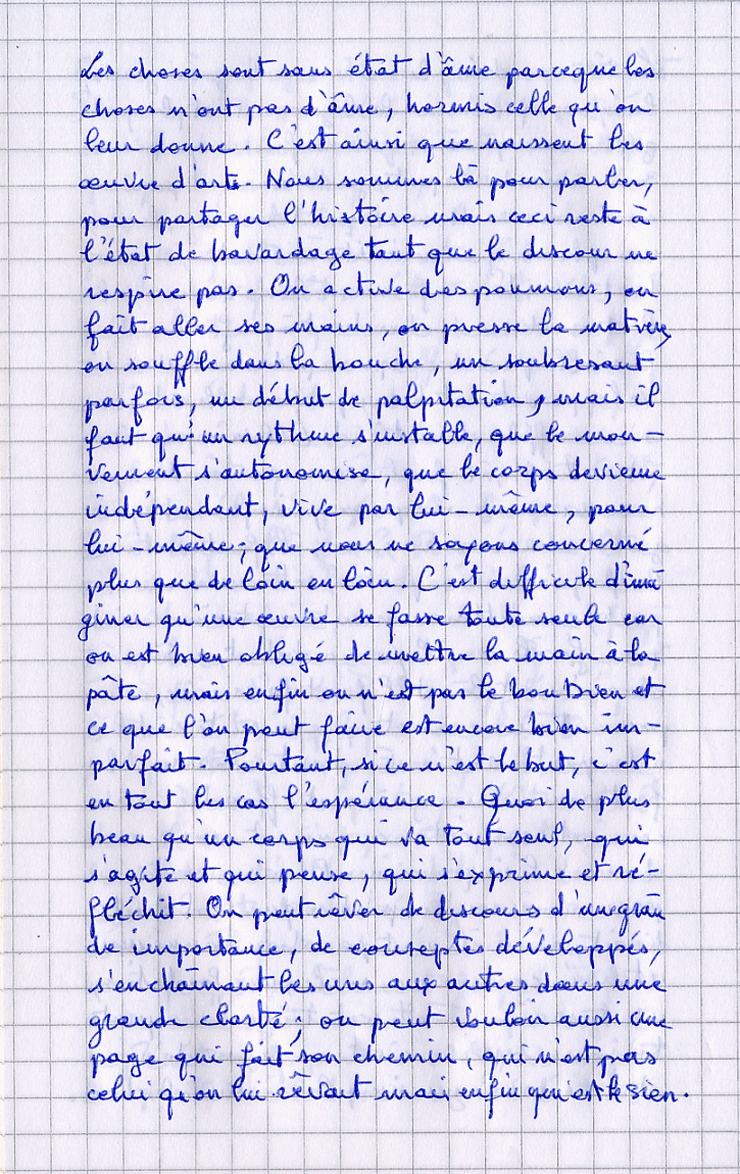 Les choses sont sans état d'âme parceque les
choses n'ont pas d'âme, hormis celle qu'on
leur donne. C'est ainsi que naissent les
œuvre d'arts. Nous sommes là pour parler,
pour partager l'histoire mais ceci reste à
l'état de bavardage tant que le discour ne
respire pas. On active des poumons, on
fait aller ses mains, on presse la matière,
on souffle dans la bouche, un soubresaut
parfois, un début de palpitation, mais il
faut qu'un rythme s'installe, que le mou-
vement s'autonomise, que le corps devienne
indépendant, vive par lui-même, pour
lui-même; que nous ne soyons concerné
plus que de loin en loin. C'est difficile d'ima
giner qu'une œuvre se fasse toute seule car
on est bien obligé de mettre la main à la
pâte, mais enfin on n'est pas le bon Dieu et
ce que l'on peut faire est encore bien im-
parfait. Pourtant, si ce n'est le but, c'est
en tout les cas l'espérance. Quoi de plus
beau qu'un corps qui va tout seul, qui
s'agite et qui pense, qui s'exprime et ré-
fléchit. On peut rêver de discours d'une gran
de importance, de conceptes développés,
s'enchaînant les uns aux autres dans une
grande clarté; on peut vouloir aussi une
page qui fait son chemin, qui n'est pas
celui qu'on lui rêvait mais enfin qui est le sien.